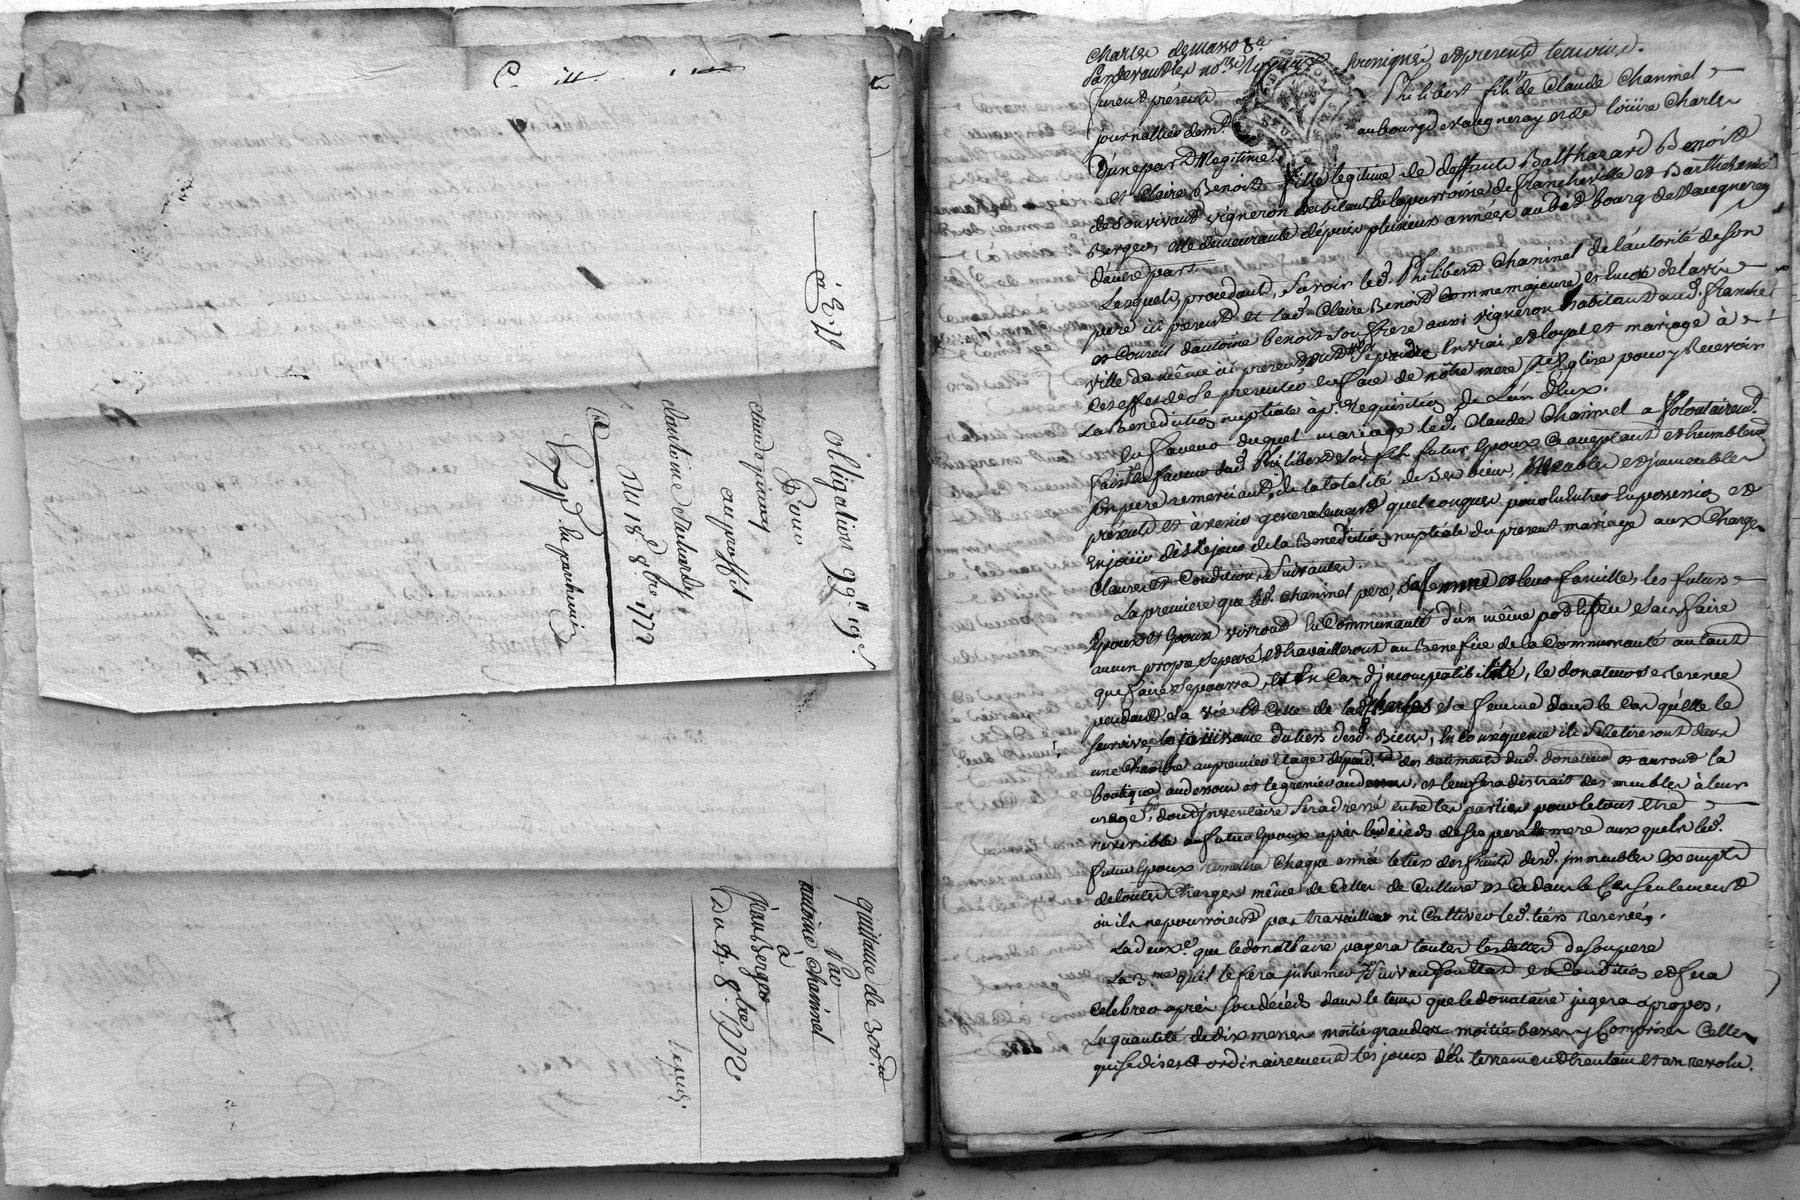 obligation 99.tt 19.s
Pour
claude pinay
au proffit
d'antoine
Du 18.e 8.bre 1772
Exp.
quittance de 300.tt
Par
antoine Chaninel
à
jean Berger
Du 4. 8.bre 1772
Par devant les no.res soussignés et presents temoins.
furent présents Philibert fils de Claude Chaninel
journallier dem.t au bourg de vaugneray et de loüise Charles
D'une part
et Claire Benoist fille legitime de deffunts Balthazard Benoist
de son vivant vigneron habitant de la parroisse de francheville et Barthelemie
Berger, elle demeurante depuis plusieurs années aud. bourg de Vaugneray
d'autre part.
Lesquels, procedant, Savoir led. Philibert Chaninel de l'autorité de son
pere ici present et lad. Claire Benoist Comme majeure et encore de l'avis
et Conseil d'antoine benoist son frere aussi vigneron habitant aud. franche
ville de même ici present se prendre en vrai et loyal et mariage à
Ces effet de se presenter en face de nôtre mere S.te Eglise pour y Recevoir
La Benediction nuptiale à p.re Requisition de L'un d'Eux.
En faveur duquel mariage led. Claude Chaninel a Volontairem.t
fait en faveur dud. Philibert son fils futur Epoux Ce acceptant et humblem.t
son pere remerciant, de la totalité de ses biens, Meubles et immeubles
présents et à venir generalement quelconques, pour lui entrer en possession et
En joüir dès le jour de la Benediction nuptiale du present mariage aux Charges
Clauses et Conditions Suivantes.
La premiere que led. Chaninel pere, sa femme et leur famille, les futurs
Epoux et Epouse vivront en Communauté d'un même pot et feu et sans faire
aucun propre separé et travailleront au Benefice de la Communauté autant
que faire se pourra, Et En Cas d'jncompatibilité, le donateur se reserve
pendant sa vie et Celle de lad. Charles sa femme dans le Cas qu'elle le
survive, la joüissance du tiers desd. Biens, En conséquence ils se retireront dans
une Chambre au premier Etage des batiments dud. donateur et auront la
boutique au dessous et le grenier au dessus, et leur sera distrait des meubles à leur
usage, dont jnventaire sera dressé entre les parties pour le tout être
reversible au futur Epoux après le décès de ses pere et mere aux quels led.
futur Epoux remettra Chaque année le tiers des fruits desd. jmmeubles Exempts
de toutes Charges même de Celles de Culture et Ce dans le Cas seulement
où ils ne pourroient pas travailler ni Cultiver led. tiers reservé.
La deux.e que le donataire payera toutes les dettes de son pere
La 3.me qu'il le fera jnhumer suivant son Etat et Condition et fera
Celebrer après son décès dans le tems que le donataire jugera apropos,
La quantité de dix messes moitié grandes moitié basses y Comprises Celles
qui se disent ordinairement les jours d'Enterrement trentain et an revolu.